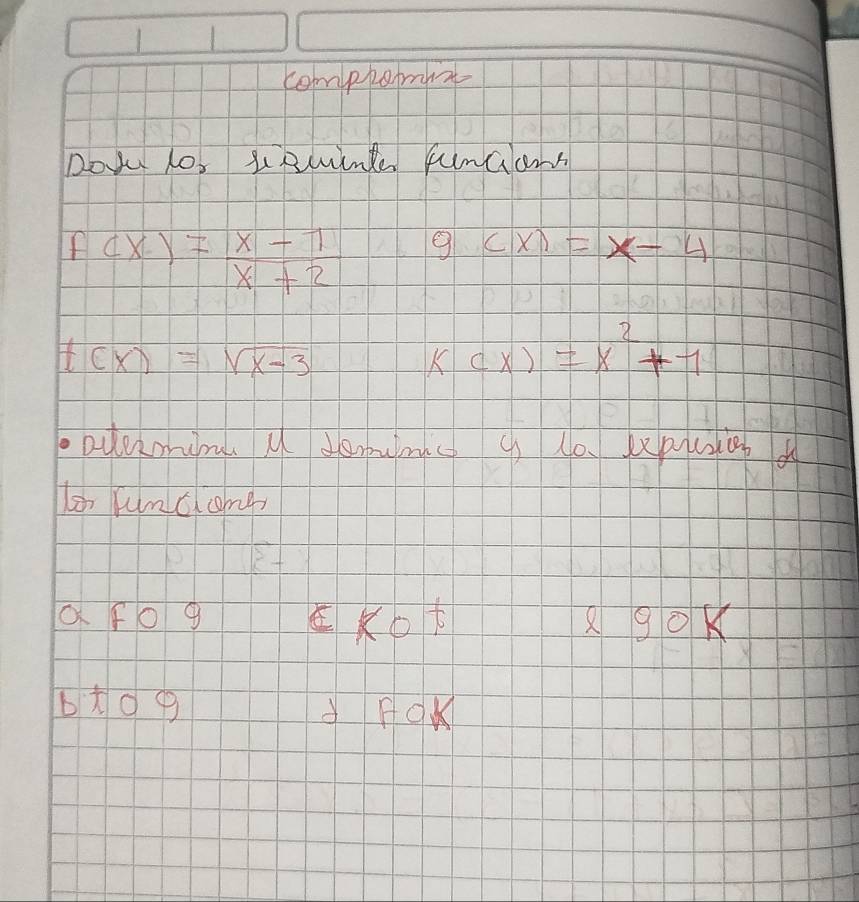 compromix
Dadu los siguientes funcions
F(x) = x - 1 / x + 2 g(x) = x - 4
t(x) = √x-3 K(x) = x² + 1
• Determine el dominio y la expresion d
los funciones
a F o g c K o t e g o K
b t o g d F o K